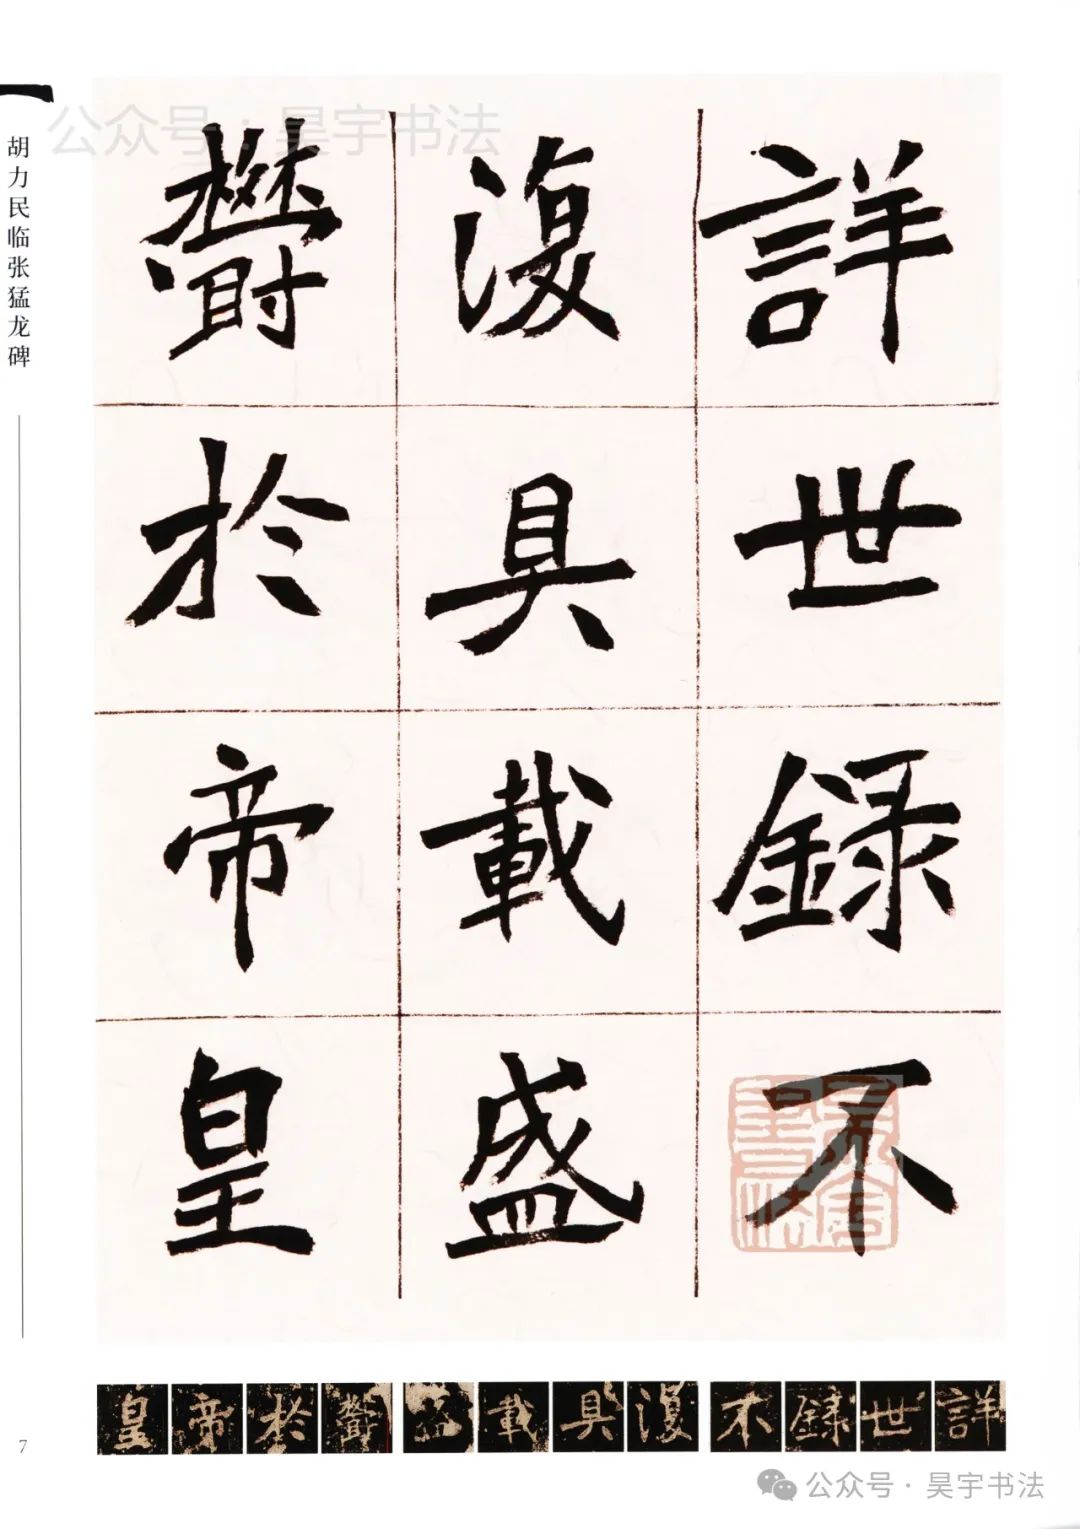 公众号·昊宇书法
胡力民临张猛龙碑
詳世録不
復具載盛
欝於帝皇
詳世録不復具載盛欝於帝皇
7
公众号·昊宇书法